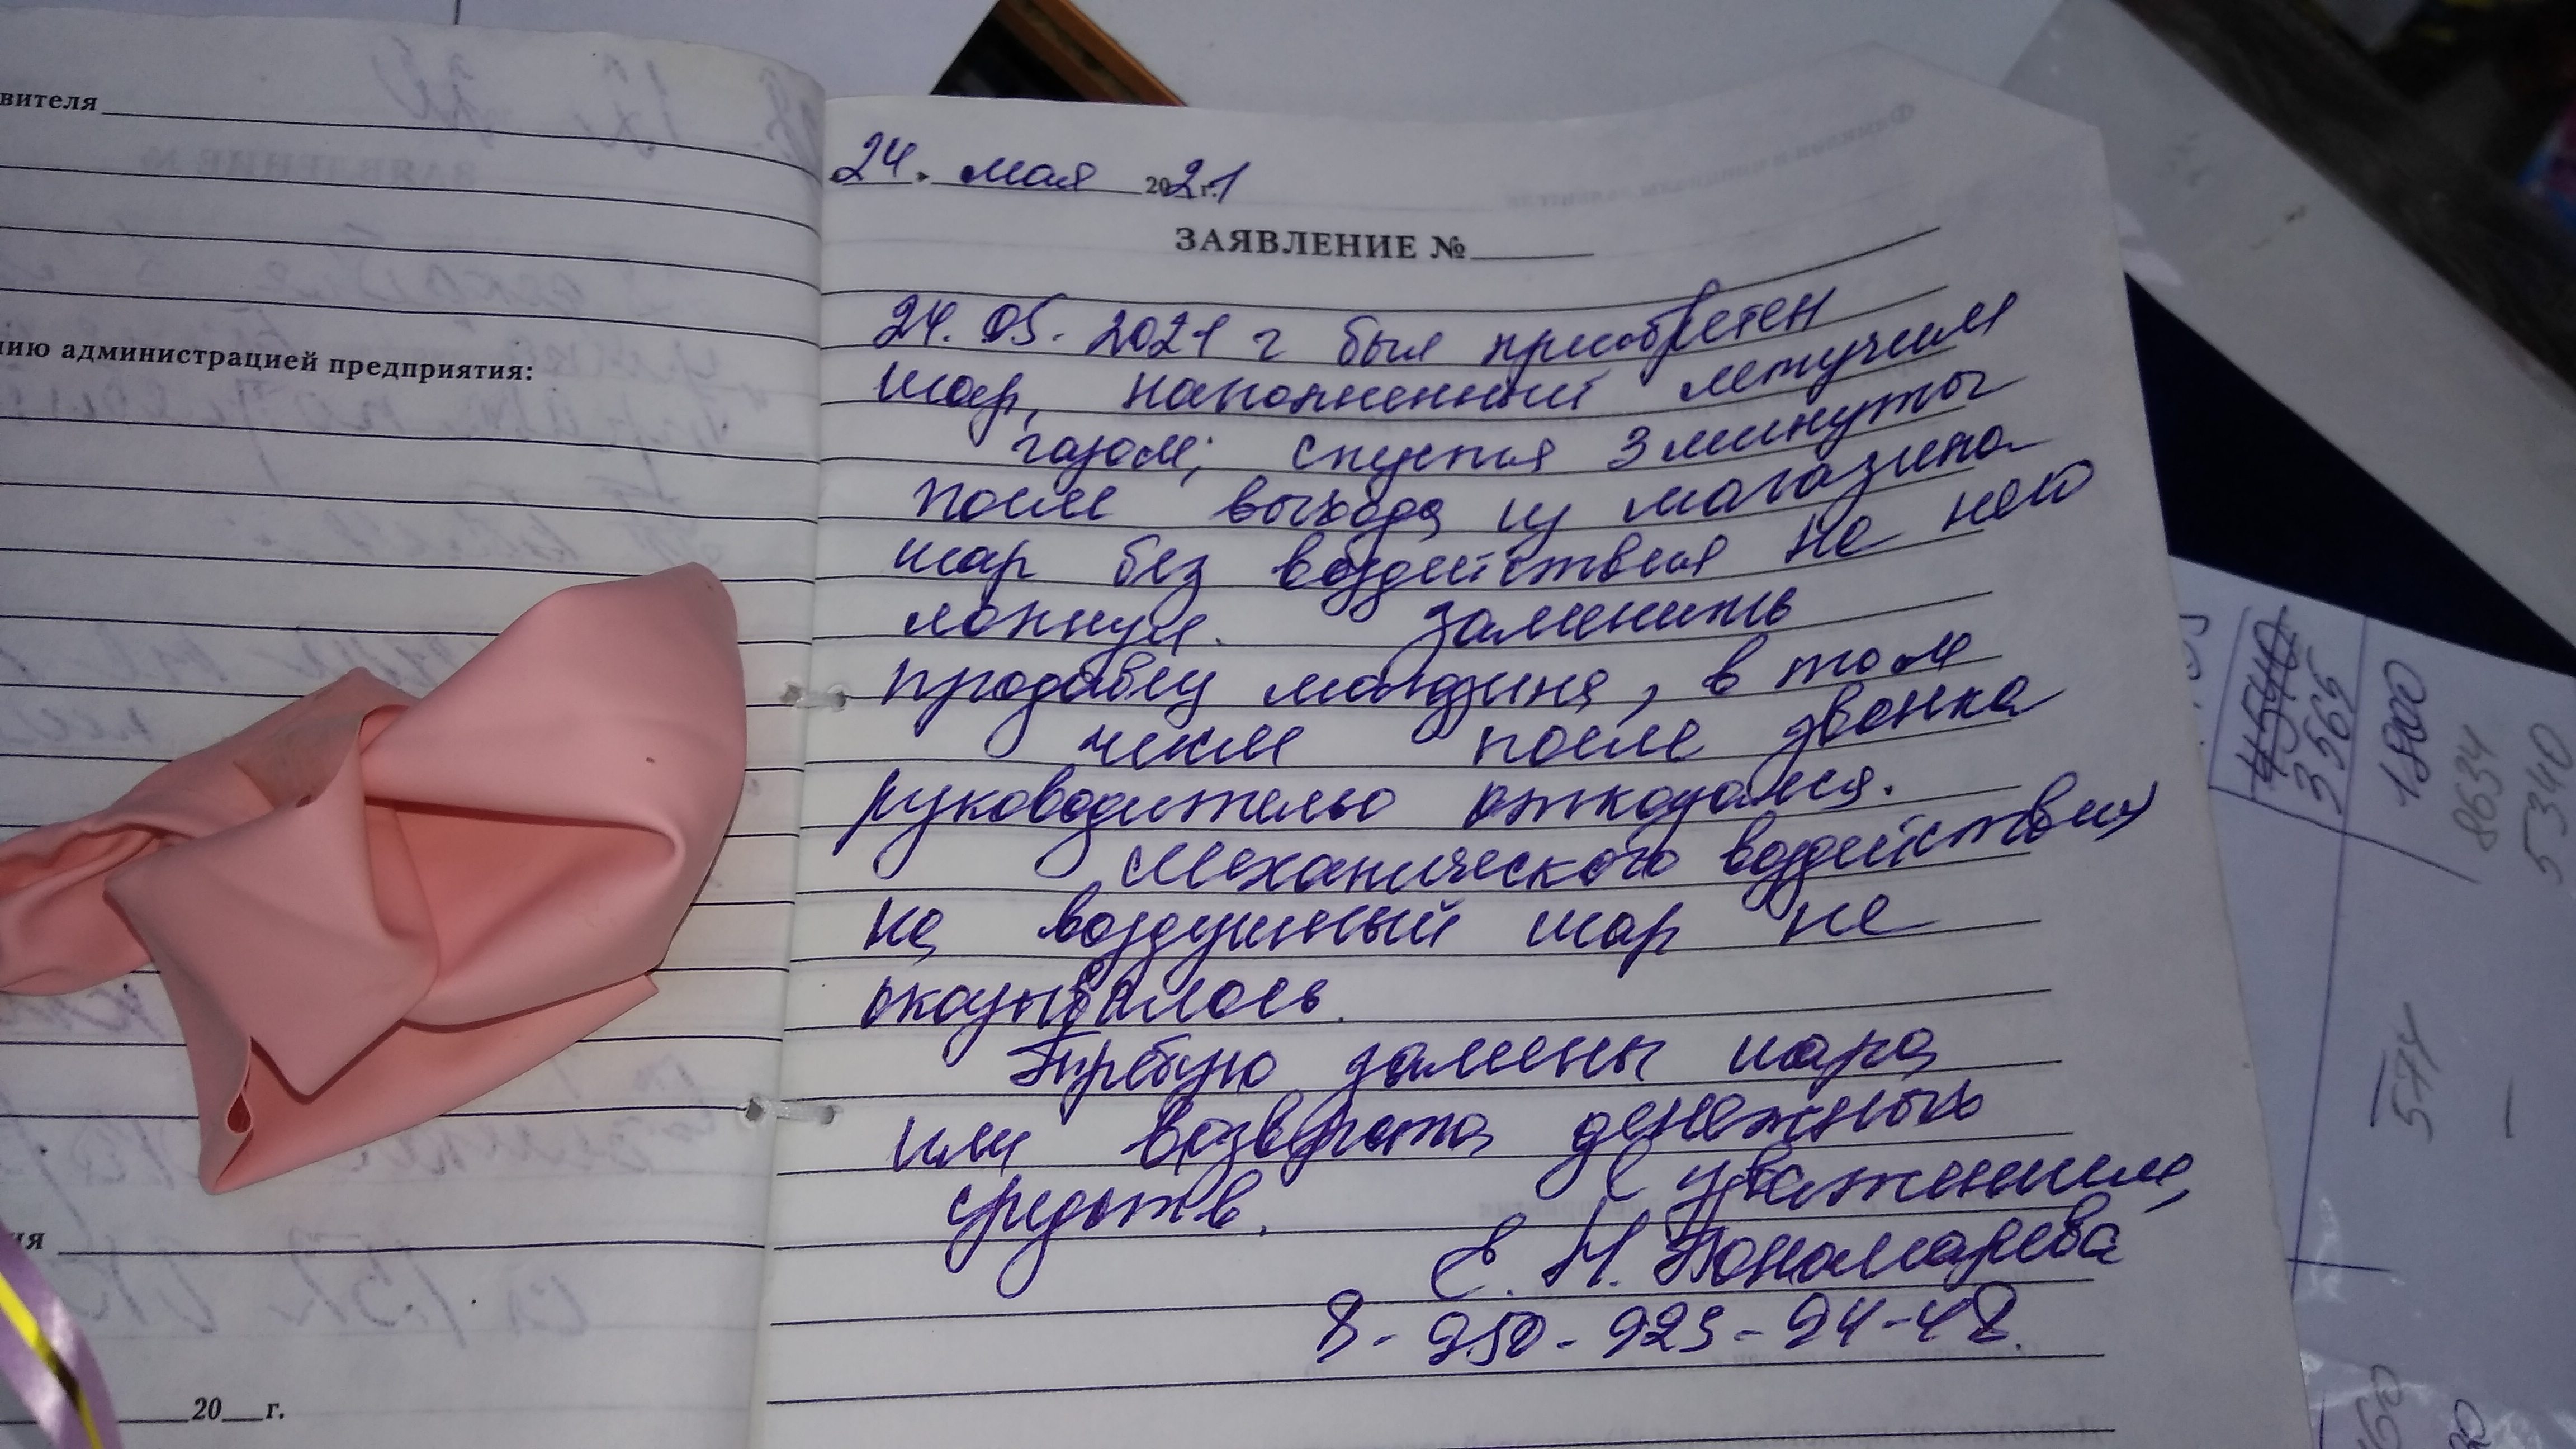 вителя
нию администрацией предприятия:
ия
20 г.
24. мая 2021
ЗАЯВЛЕНИЕ №
24.05.2021 г был приобретен
шар, наполненный летучим
газом; спустя 3 минуты
после выхода из магазина
шар без воздействия не него
лопнул. Заменить
продавец магазина, в том
числе после звонка
руководителю отказался.
Механического воздействия
на воздушный шар не
оказывалось.
Требую замены шара
или возврата денежных
средств. С уважением,
Е. Н. Пономарева
8-950-923-94-48.
4540
3565
1800
8634
5340
574